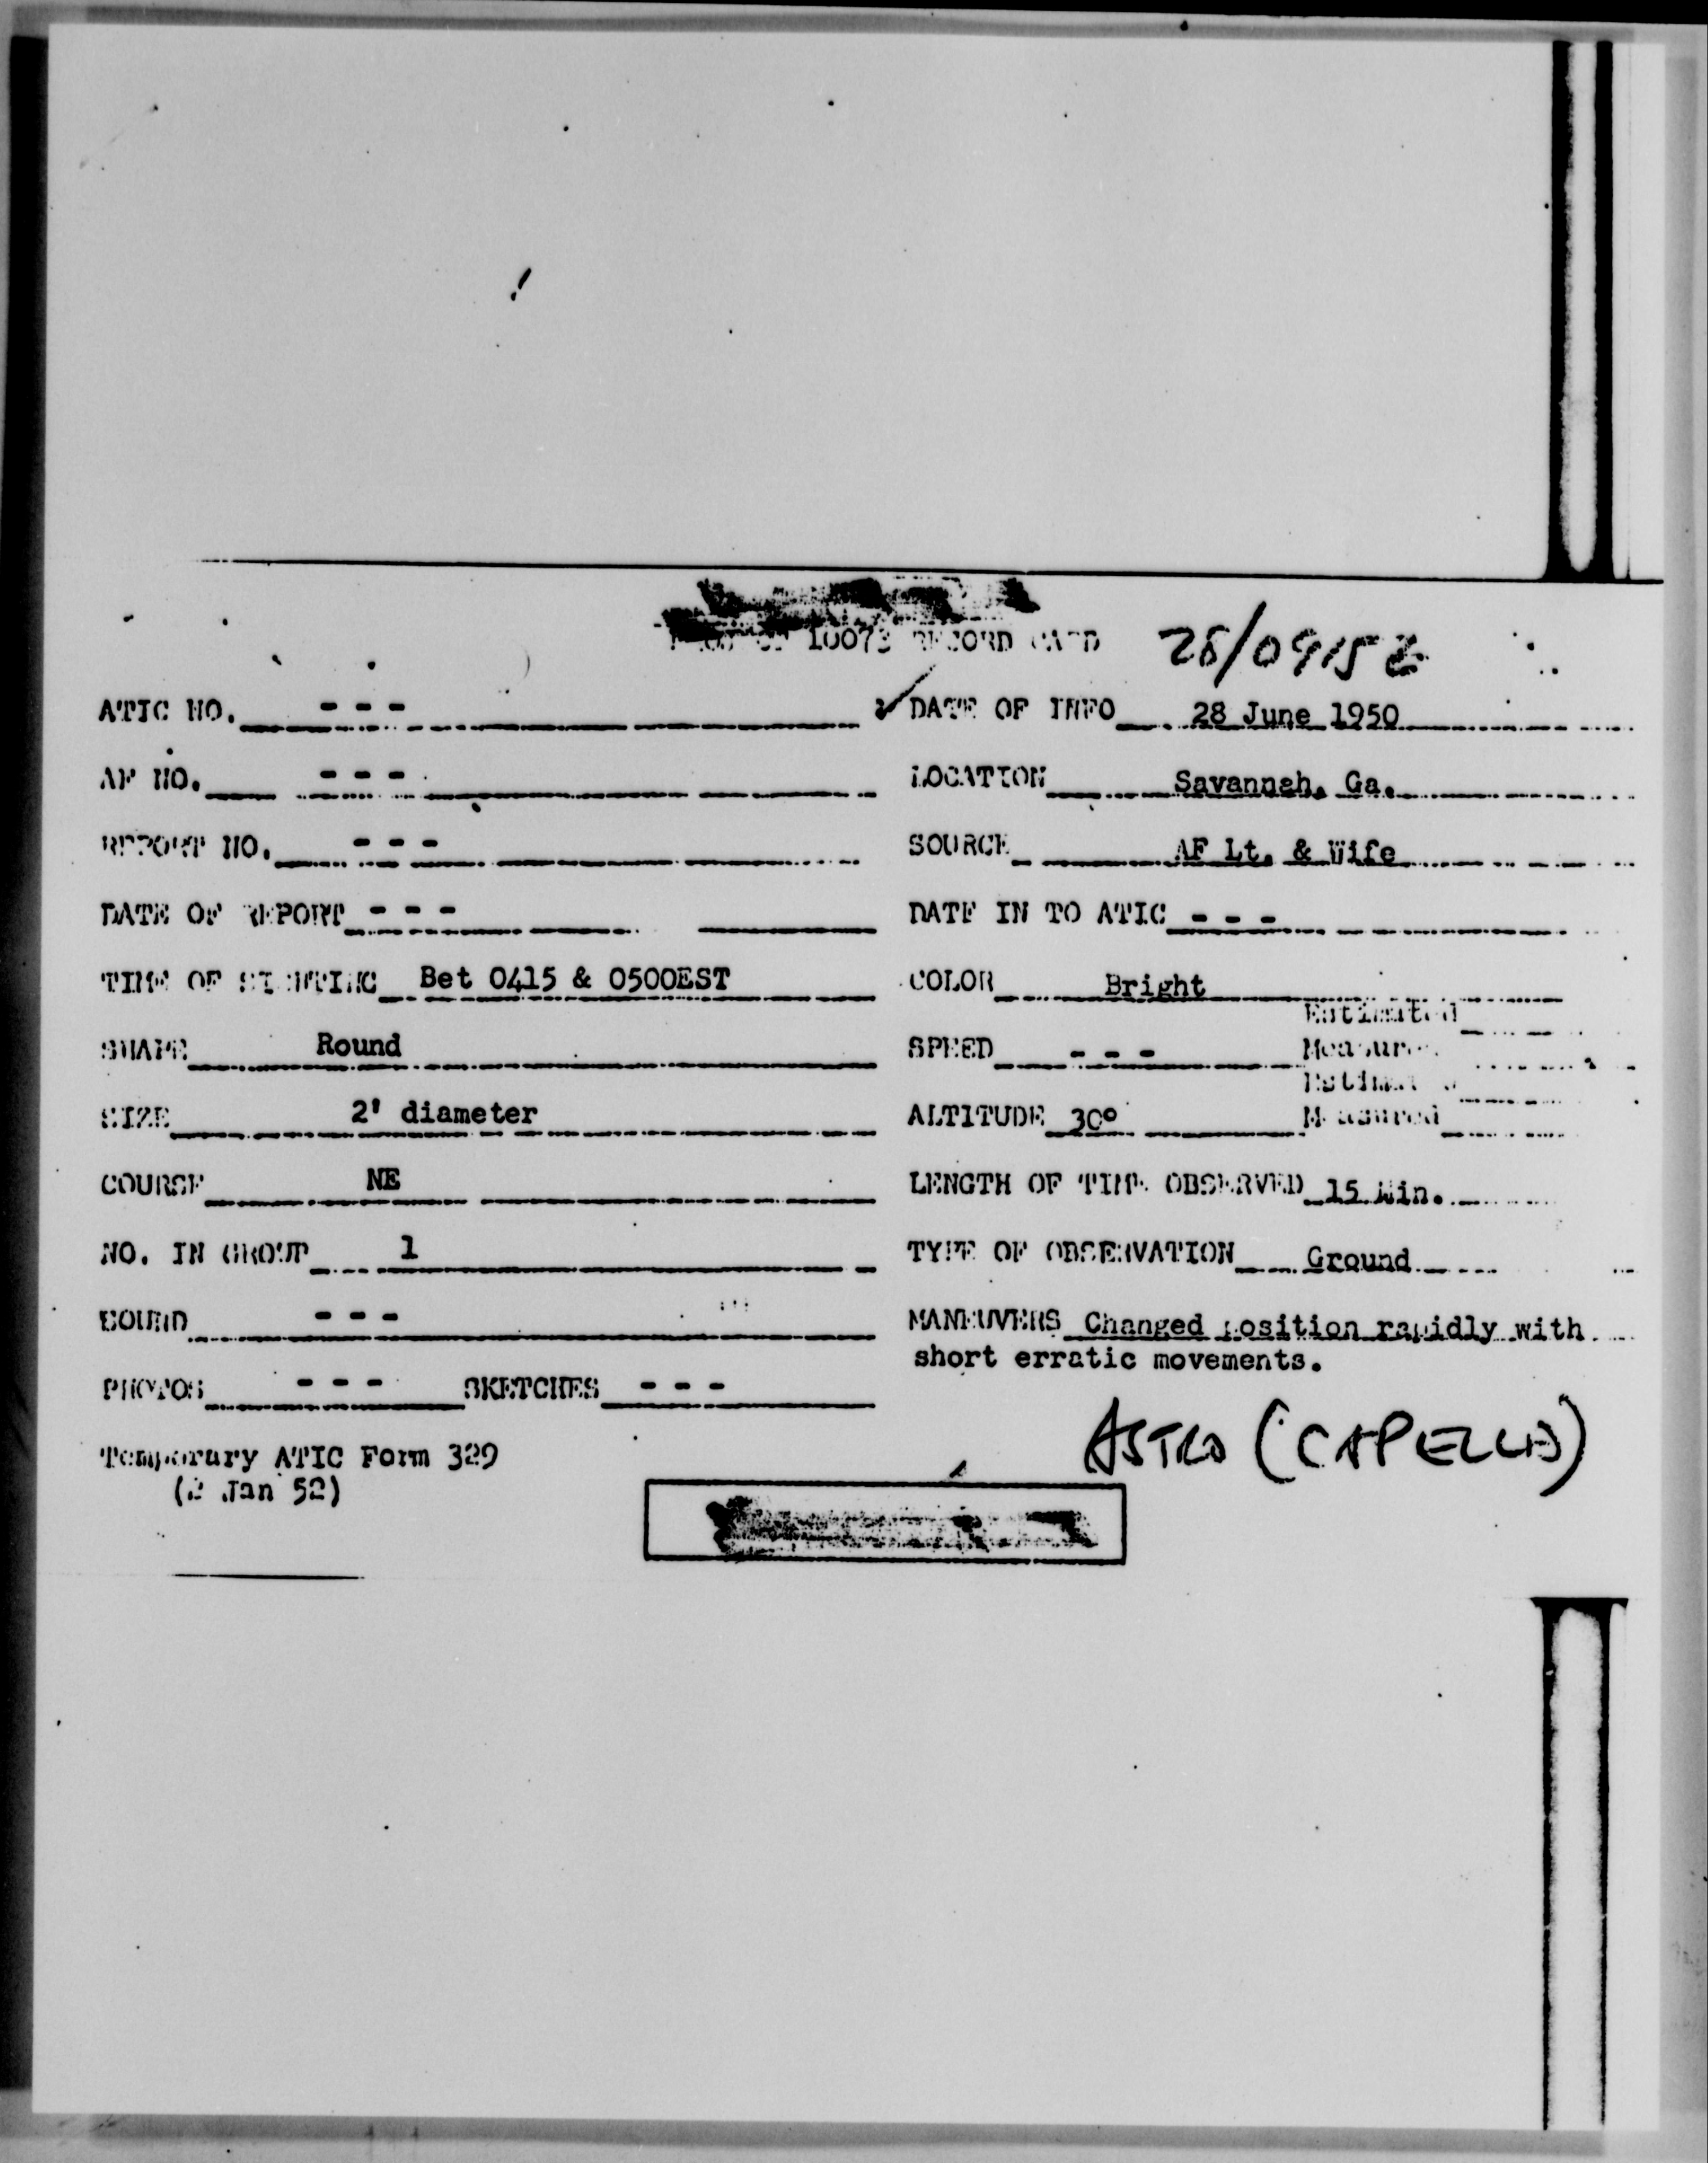 10073 RECORD CARD 28/0915Z
ATIC NO. - - -
DATE OF INFO 28 June 1950
AF NO. - - -
LOCATION Savannah, Ga.
REPORT NO. - - -
SOURCE AF Lt. & Wife
DATE OF REPORT - - -
DATE IN TO ATIC - - -
TIME OF SIGHTING Bet 0415 & 0500EST
COLOR Bright
SHAPE Round
SPEED - - - Estimated
Measured
SIZE 2' diameter
ALTITUDE 30° Estimated
Measured
COURSE NE
LENGTH OF TIME OBSERVED 15 Min.
NO. IN GROUP 1
TYPE OF OBSERVATION Ground
SOUND - - -
MANEUVERS Changed position rapidly with
short erratic movements.
PHOTOS - - - SKETCHES - - -
ASTRO (CAPELLA)
Temporary ATIC Form 329
(2 Jan 52)